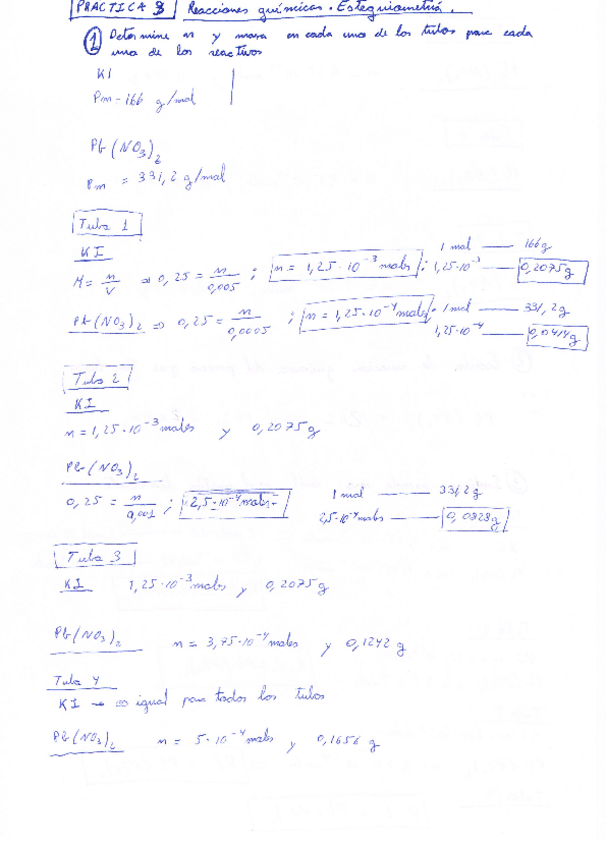 PRACTICA 8 Reacciones químicas. Estequiometría.
1 Determine m y masa en cada uno de los tubos para cada
uno de los reactivos
KI
Pm = 166 g/mol
Pb(NO3)2
Pm = 331,2 g/mol
Tubo 1
KI
M = n/V ⇒ 0,25 = n/0,005 ; n = 1,25·10^-3 moles ; 1 mol —— 166g
1,25·10^-3 —— 0,2075g
Pb(NO3)2 ⇒ 0,25 = n/0,0005 ; n = 1,25·10^-4 moles · 1 mol —— 331,2g
1,25·10^-4 —— 0,0414g
Tubo 2
KI
n = 1,25·10^-3 moles y 0,2075g
Pb(NO3)2
0,25 = n/0,001 ; 2,5·10^-4 moles 1 mol —— 331,2g
2,5·10^-4 moles —— 0,0828g
Tubo 3
KI 1,25·10^-3 moles y 0,2075g
Pb(NO3)2 n = 3,75·10^-4 moles y 0,1242 g
Tubo 4
KI → es igual para todos los tubos
Pb(NO3)2 n = 5·10^-4 moles y 0,1656 g